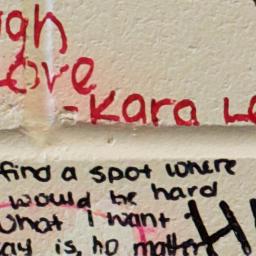 igh
Love
-Kara Le
find a spot where
would be hard
what I want
ay is, no matter
H